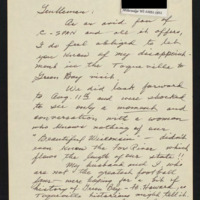 Gentlemen:
As an avid fan of
C-SPAN and all it offers,
I do feel obliged to let
you know of my disappoint-
ment in the Tocqueville to
Green Bay visit.
We did look forward
to Aug 11th and were shocked
to see only a moment and
conversation with a woman
who knows nothing of our
"Beautiful Wisconsin" - didn't
even know the Fox River which
flows the length of our state!!
My husband and I, who are
not "the greatest football
fans" - were hoping for a bit of
history of Green Bay - Ft. Howard, or
Tocqueville historians might tell it